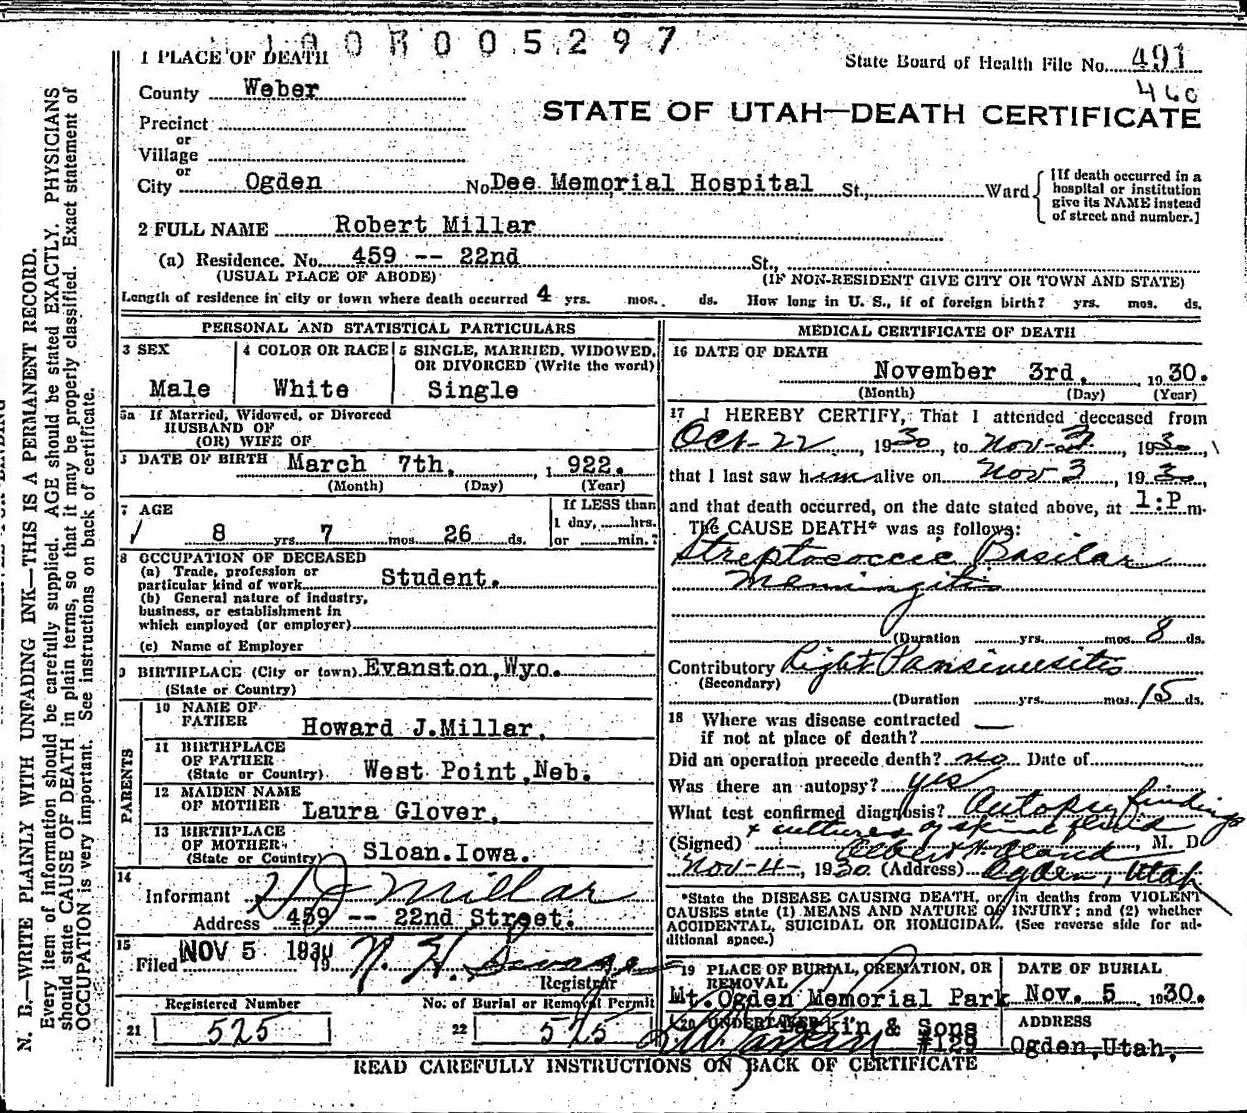 1 PLACE OF DEATH
State Board of Health File No. 491
County Weber
460
STATE OF UTAH—DEATH CERTIFICATE
Precinct
or
Village
or
City Ogden No Dee Memorial Hospital St., Ward
[If death occurred in a hospital or institution give its NAME instead of street and number.]
2 FULL NAME Robert Millar
(a) Residence. No. 459 -- 22nd St.,
(USUAL PLACE OF ABODE) (IF NON-RESIDENT GIVE CITY OR TOWN AND STATE)
Length of residence in city or town where death occurred 4 yrs. mos. ds. How long in U. S., if of foreign birth? yrs. mos. ds.
PERSONAL AND STATISTICAL PARTICULARS
3 SEX
Male
4 COLOR OR RACE
White
5 SINGLE, MARRIED, WIDOWED, OR DIVORCED (Write the word)
Single
5a If Married, Widowed, or Divorced
HUSBAND OF
(OR) WIFE OF
DATE OF BIRTH March 7th, 1922.
(Month) (Day) (Year)
7 AGE
8 yrs. 7 mos. 26 ds.
If LESS than
1 day, hrs.
or min.?
8 OCCUPATION OF DECEASED
(a) Trade, profession or
particular kind of work Student.
(b) General nature of industry,
business, or establishment in
which employed (or employer)
(c) Name of Employer
9 BIRTHPLACE (City or town) Evanston, Wyo.
(State or Country)
PARENTS
10 NAME OF
FATHER Howard J. Millar,
11 BIRTHPLACE
OF FATHER
(State or Country) West Point, Neb.
12 MAIDEN NAME
OF MOTHER Laura Glover,
13 BIRTHPLACE
OF MOTHER
(State or Country) Sloan. Iowa.
14
Informant H J Millar
Address 459 -- 22nd Street.
15
Filed NOV 5 1930 19
Registrar
Registered Number
21 525
No. of Burial or Removal Permit
22 525
MEDICAL CERTIFICATE OF DEATH
16 DATE OF DEATH
November 3rd, 1930.
(Month) (Day) (Year)
17 I HEREBY CERTIFY, That I attended deceased from
Oct-22, 1930, to Nov-3, 1930,
that I last saw him alive on Nov 3, 1930,
and that death occurred, on the date stated above, at 1:P m.
The CAUSE DEATH* was as follows:
Streptococcic Basilar
Meningitis
(Duration yrs. mos 8 ds.
Contributory Right Pansinusitis
(Secondary)
(Duration yrs. mos. 15 ds.
18 Where was disease contracted —
if not at place of death?
Did an operation precede death? no Date of
Was there an autopsy? yes
What test confirmed diagnosis? Autopsy findings
+ cultures of spinal fluid
(Signed) , M. D
Nov-4-, 1930 (Address) Ogden, Utah
*State the DISEASE CAUSING DEATH, or, in deaths from VIOLENT
CAUSES state (1) MEANS AND NATURE OF INJURY; and (2) whether
ACCIDENTAL, SUICIDAL OR HOMICIDAL. (See reverse side for ad-
ditional space.)
19 PLACE OF BURIAL, CREMATION, OR REMOVAL
Mt. Ogden Memorial Park
DATE OF BURIAL
Nov. 5 1930.
20 UNDERTAKER Larkin & Sons
#129
ADDRESS
Ogden, Utah,
READ CAREFULLY INSTRUCTIONS ON BACK OF CERTIFICATE
N. B.—WRITE PLAINLY WITH UNFADING INK—THIS IS A PERMANENT RECORD.
Every item of information should be carefully supplied. AGE should be stated EXACTLY. PHYSICIANS
should state CAUSE OF DEATH in plain terms, so that it may be properly classified. Exact statement of
OCCUPATION is very important. See instructions on back of certificate.